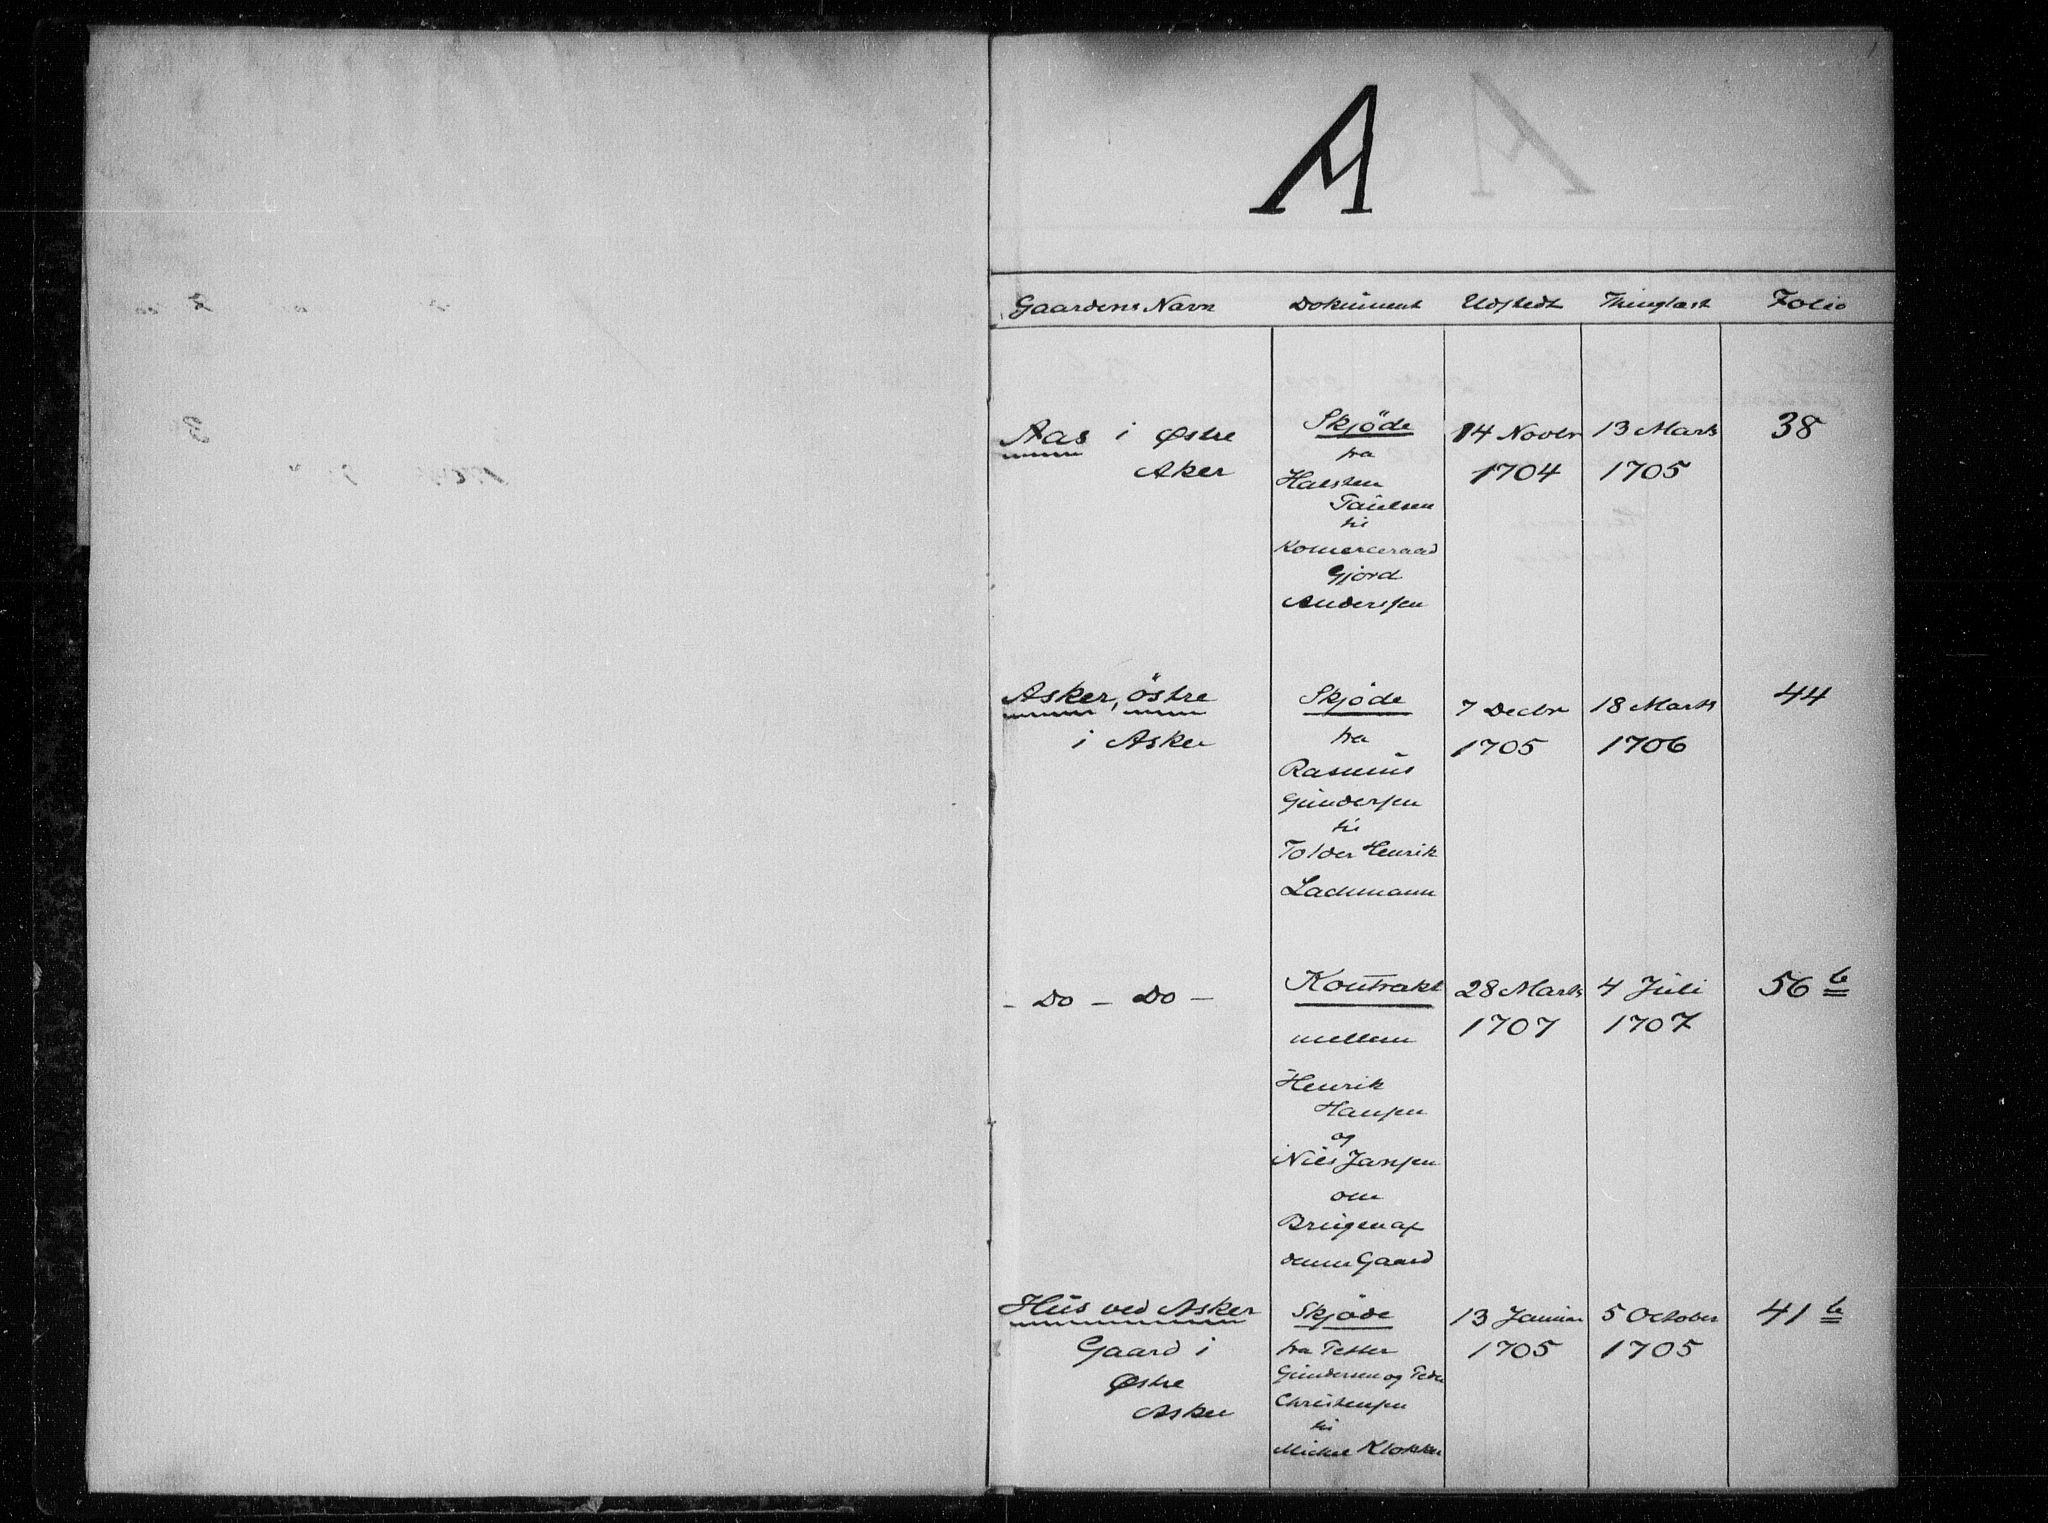 1
A
Gaardens Navn Dokument Udstedt Thinglæst Folio
Aas i Østre
Aker
Skjöde
fra
Halsten
Paulsen
til
Komerceraad
Gjord
Anderssen
14 Novbr
1704
13 Marts
1705
38
Asker, östre
i Asker
Skjöde
fra
Rasmus
Gundersen
til
Tolder Henrik
Lachmann
7 Decbr
1705
18 Marts
1706
44
- Do - Do -
Kontrakt
mellem
Henrik
Hansen
og
Niels Jansen
om
Brugen af
denne Gaard
28 Marts
1707
4 Juli
1707
56 b
Hus ved Asker
Gaard i
Østre
Asker
Skjöde
fra Petter
Gundersen og Peder
Christensen
til
Michel Klokker
13 Januar
1705
5 October
1705
41 b